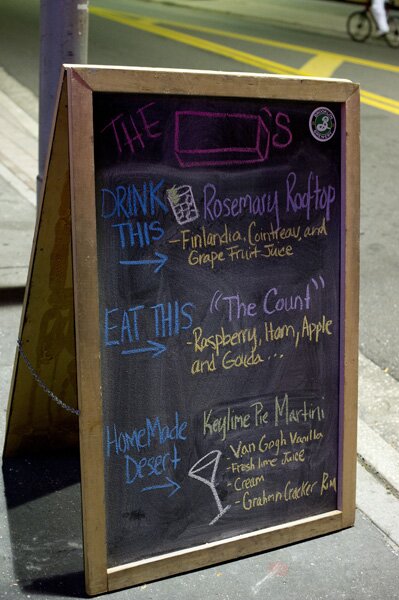 THE 'S
DRINK THIS
Rosemary Rooftop
-Finlandia, Cointreau, and
Grape Fruit Juice
EAT THIS
"The Count"
-Raspberry, Ham, Apple
and Gouda...
HomeMade
Desert
Keylime Pie Martini
-Van Gogh Vanilla
-Fresh lime Juice
-Cream
-Grahm Cracker Rim